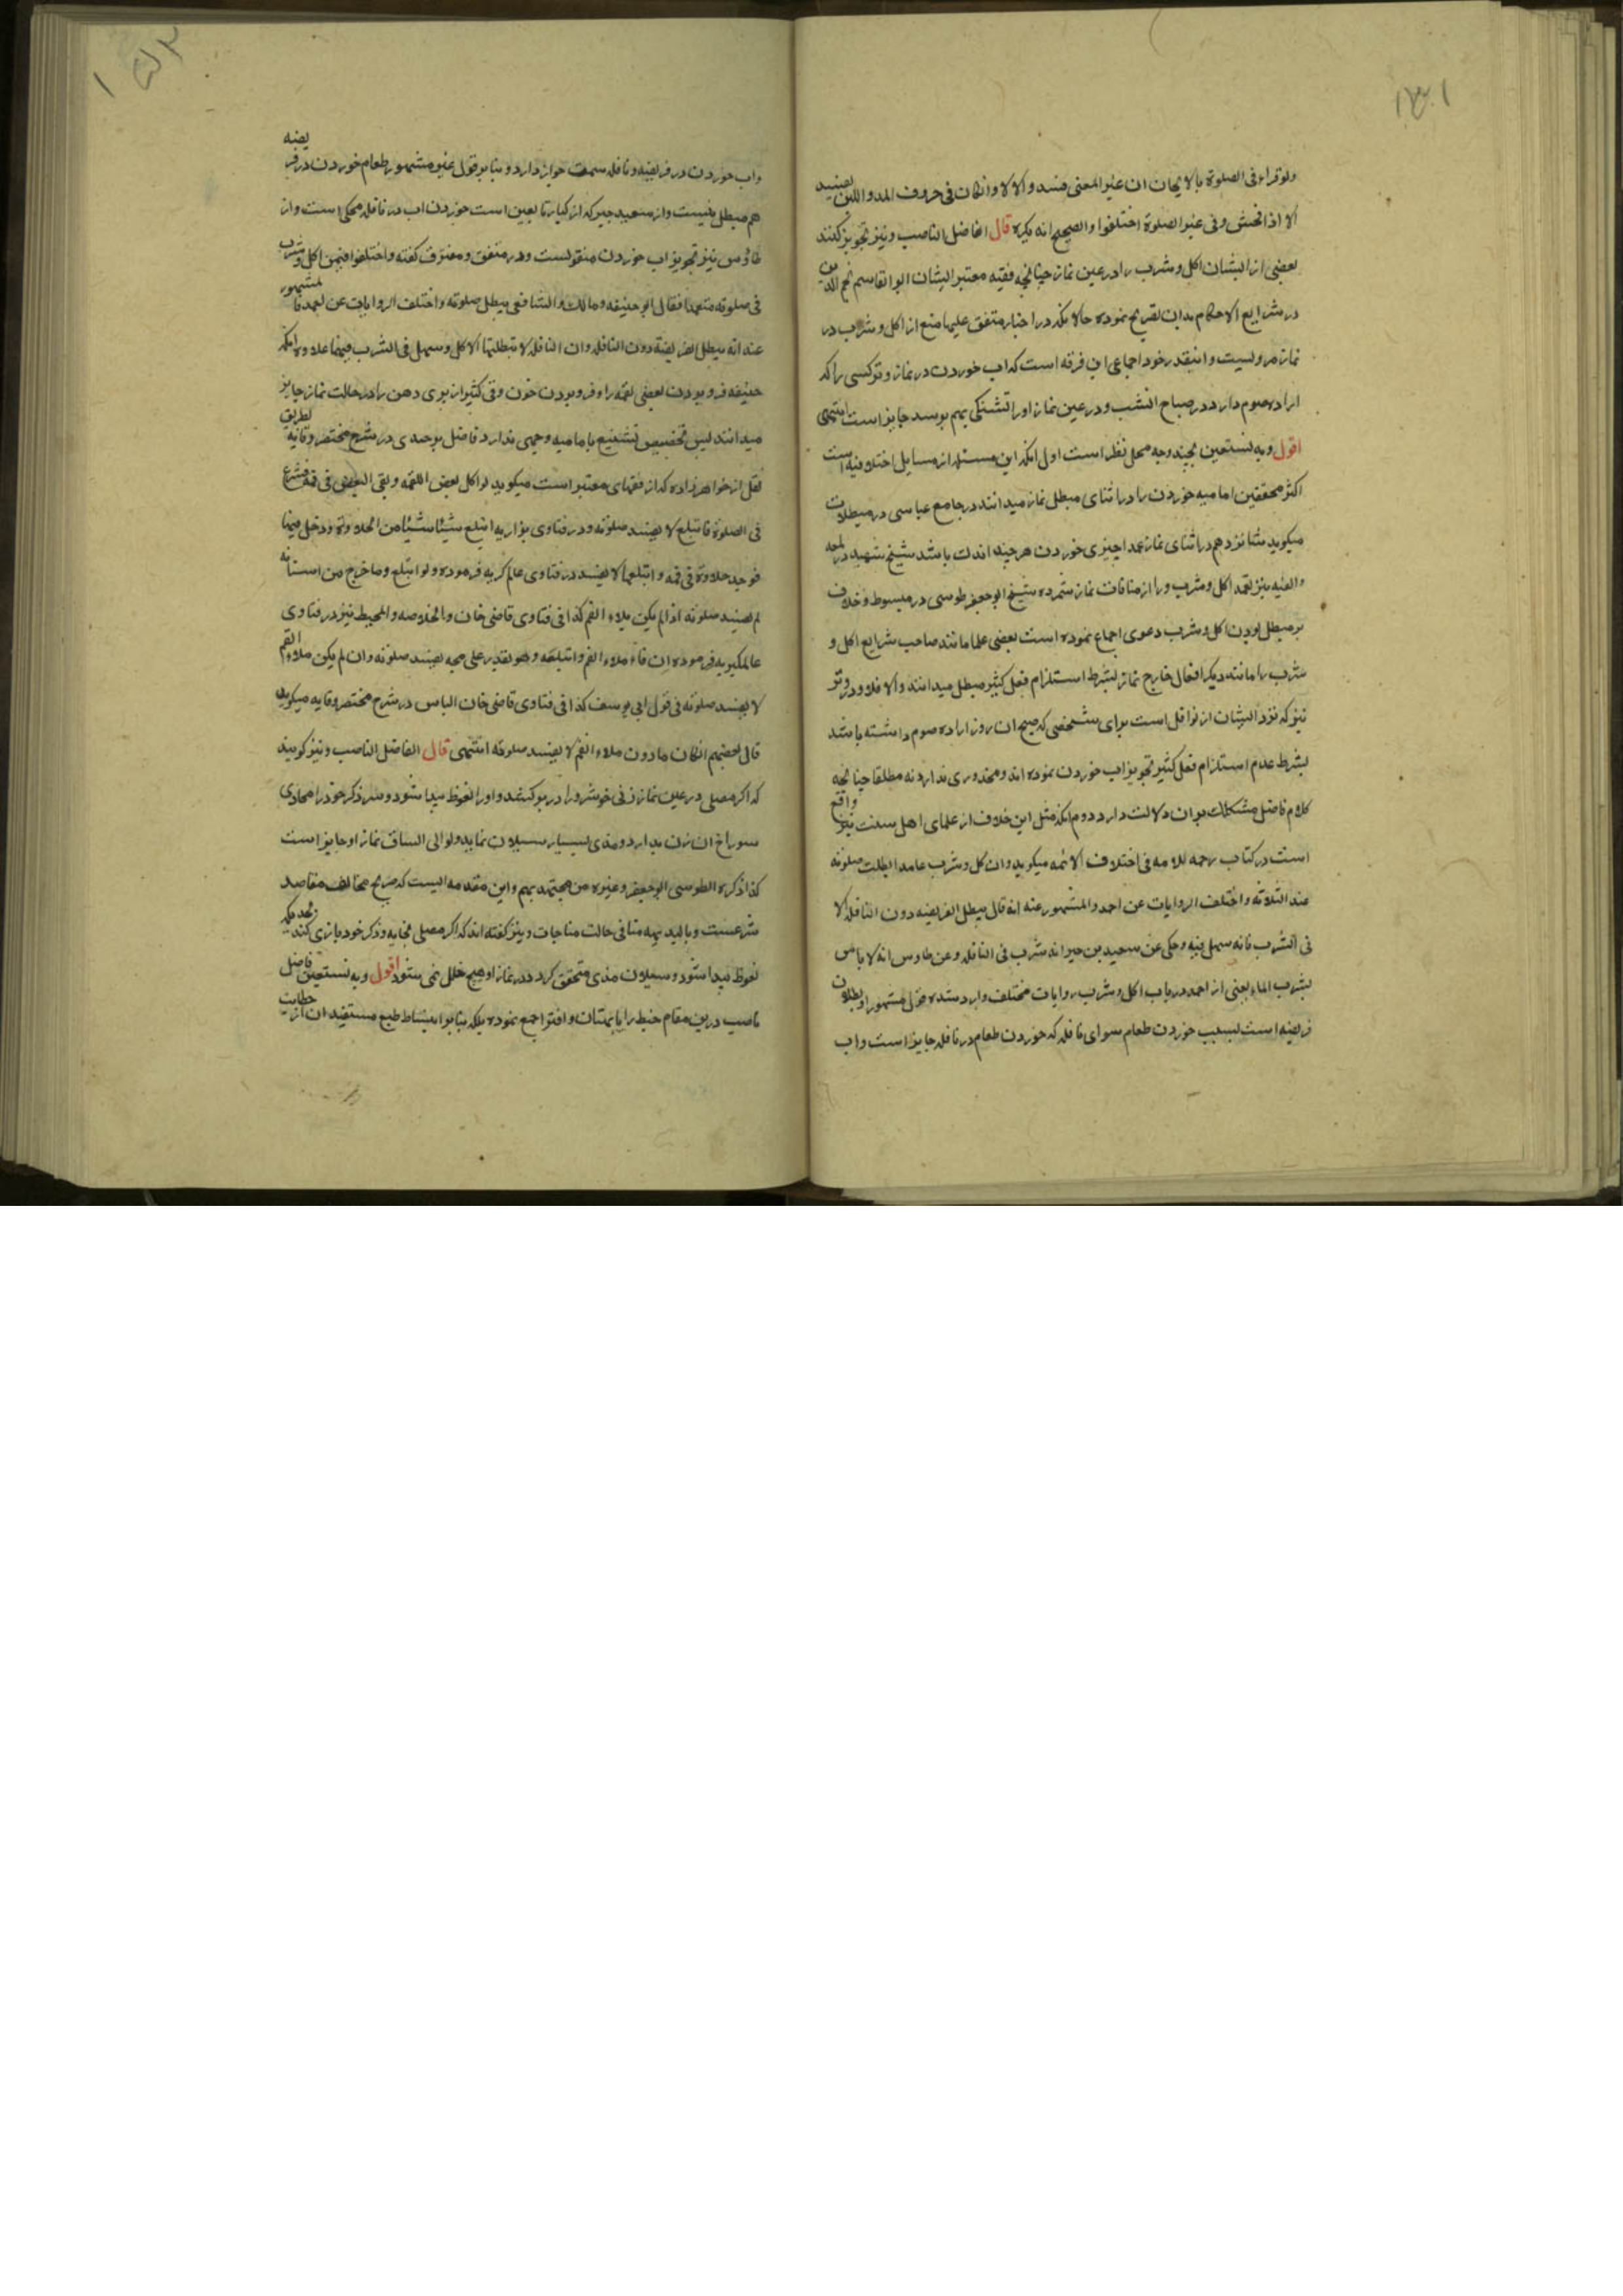 ۱۳۱
ولو قراء فی الصلوة بالالحان ان غیر المعنی فسد والا لا وانکان فی حروف المد واللین لایفسد
الا اذا فحش وفی غیر الصلوة اختلفوا والصحیح انه یکره قال الفاضل الناصب ونیز تجویز کنند
بعضی از ایشان اکل و شرب را در عین نماز چنانچه فقیه معتبر ایشان ابو القاسم نجم الدین
در شرایع الاحکام بدان تصریح نموده حالانکه در اخبار متفق علیها منع از اکل و شرب در
نماز مرویست و اینقدر خود اجماعی این فرقه است که اب خوردن در نماز وتر کسی را که
اراده صوم دارد در صباح انشب و در عین نماز او را تشنگی بهم برسد جایز است انتهی
اقول وبه نستعین بچند وجه محل نظر است اول انکه این مسئله از مسایل اختلافیه است
اکثر محققین امامیه خوردن را در اثنای مبطل نماز میدانند در جامع عباسی در مبطلات
میکوید شانزدهم در اثنای نماز عمدا چیزی خوردن هر چند اندک باشد شیخ شهید در لمعه
والفیه نیز تعمد اکل و شرب را از منافات نماز شمرده شیخ ابو جعفر طوسی در مبسوط و خلاف
بر مبطل بودن اکل و شرب دعوی اجماع نموده است بعضی علما مانند صاحب شرایع اکل و
شرب را مانند دیکر افعال خارج نماز بشرط استلزام فعل کثیر مبطل میدانند والا فلا و در وتر
نیز که نزد ایشان از نوافل است برای شخصی که صبح ان روز اراده صوم داشته باشد
بشرط عدم استلزام فعل کثیر تجویز اب خوردن نموده اند و محذوری ندارد نه مطلقا چنانچه
کلام فاضل مشکک بر ان دلالت دارد دوم انکه مثل این خلاف از علمای اهل سنت نیز واقع
است در کتاب رحمه للامه فی اختلاف الائمه میکوید وان کل و شرب عامدا بطلت صلوته
عند الثلاثه واختلف الروایات عن احمد والمشهور عنه انه قال یبطل الفریضه دون النافله الا
فی الشرب فانه سهل فیه وحکی عن سعید بن جبیر انه شرب فی النافله وعن طاوس انه لا باس
بشرب الماء یعنی از احمد در باب اکل و شرب روایات مختلف وارد شده قول مشهور او بطلان
فریضه است بسبب خوردن طعام سوای نافله که خوردن طعام در نافله جایز است واب
واب خوردن در فریضه و نافله سمت جواز دارد و بنابر قول غیر مشهور طعام خوردن در فریضه
هم مبطل نیست و از سعید جبیر که از کبار تابعین است خوردن اب در نافله محکی است و از
طاوس نیز تجویز اب خوردن منقولست و در متفق و مفترق کفته واختلفوا فیمن اکل و شرب
فی صلوته متعمدا فقال ابو حنیفه ومالک والشافعی یبطل صلوته واختلف الروایات عن احمد فالمشهور
عنه انه یبطل الفریضة دون النافله وان النافله لا تبطلها الا کل وسهل فی الشرب فیها علاوه انکه
حنیفه فرو بردن بعضی لقمه را و فرو بردن خون و قی کثیر از پری دهن را در حالت نماز جایز
میدانند لیس تخصیص تشنیع بامامیه وجهی ندارد فاضل برجندی در شرح مختصر وقایه بطریق
نقل از خواهرزاده که از فقهای معتبر است میکوید لو اکل بعض اللقمه وبقی البعض فی فمه فشرع
فی الصلوة فابتلع لا یفسد صلوته و در فتاوی بزازیه ابتلع شیئا شیئا من الحلاوة ودخل فیها
فوجد حلاوة فی فمه وابتلعها لا یفسد در فتاوی عالمکریه فرموده ولو ابتلع وما خرج من اسنانه
لم یفسد صلوته اذا لم یکن ملاء الفم کذا فی فتاوی قاضی خان والخلاصه والمحیط نیز در فتاوی
عالمکیریه فرموده ان قاء ملاء الفم وابتلعه وهو یقدر علی مجه یفسد صلوته وان لم یکن ملاء الفم
لا یفسد صلوته فی قول ابی یوسف کذا فی فتاوی قاضی خان الیاس در شرح مختصر وقایه میکوید
قال بعضهم انکان مادون ملاء الفم لا یفسد صلوته انتهی قال الفاضل الناصب ونیز کویند
که اکر مصلی در عین نماز زنی خوشرو را در بر کشد و او را نعوظ پیدا شود و سر ذکر خود را محاذی
سوراخ ان زن بدارد و مذی بسیار سیلان نماید ولو الی الساق نماز او جایز است
کذا ذکره الطوسی ابو جعفر وغیره من مجتهدیهم واین مقدمه ایست که صریح مخالف مقاصد
شرعست وبالبدیهه منافی حالت مناجات ونیز کفته اند که اکر مصلی بخایه و ذکر خود بازی کند بحدیکه
نعوظ پیدا شود و سیلان مذی متحقق کردد در نماز او هیچ خلل نمی شود اقول وبه نستعین فاضل
ناصب درین مقام خبط را با بهتان و افترا جمع نموده بلکه بنابر انبساط طبع مستفیدان از حطایت